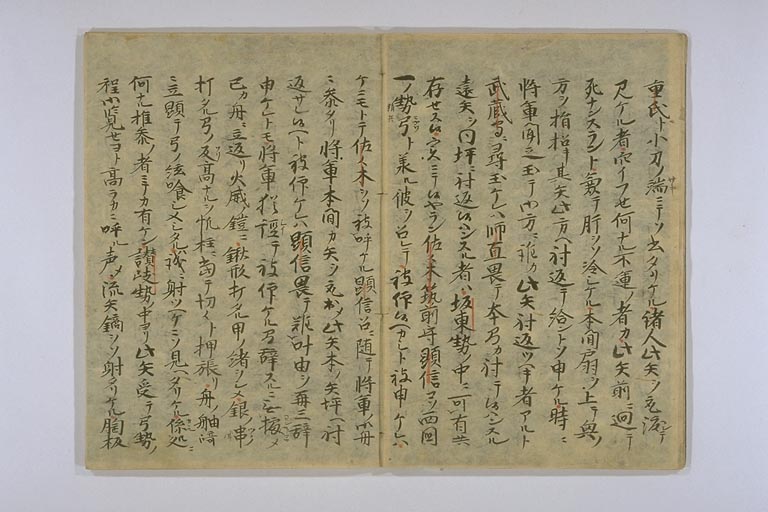 重氏ト小刀ノ端ニテソ書タリケル諸人此矢ヲ見渡シテ
見ケル者云イフセ何ナル不運ノ者カ此矢前ニ廻テ
死ナンスラント兼テ肝ヲソ冷シケル本間扇ヲ上テ奥ノ
方ヲ指招キ其矢此方ヘ射返テ給ントソ申ケル時ニ
将軍聞之玉テ御方ニ誰カ此矢射返ツヘキ者アルト
武蔵守ニ尋玉ケレハ師直畏テ本間カ射テ候ハンスル
遠矢ヲ同坪ニ射返候ハンスル者ハ坂東勢中ニ可有共
存セス候実ニテ候ヤラン佐々木筑前守顕信コソ西国
一ノ勢弓ト承ル彼ヲ召レテ被仰候ヘカシト被申ケレハ
ケニモトテ佐々木ヲソ被呼ケル顕信召ニ随テ将軍ノ御舟
ニ参タリ将軍本間カ矢ヲ取出メ此矢本ノ矢坪ヘ射
返サレ候ヘト被仰ケレハ顕信畏テ難叶由ヲ再三辞
申ケレトモ将軍猶誣テ被仰ケル間辞スルニ無拠メ
己カ舟ニ立返リ火威鎧ニ鍬形打タル甲ノ緒ヲシメ銀ノ串
打タル弓ノ反高ナルヲ帆柱ニ当テ切々ト押張リ舟ノ舳崎
ニ立顕テ弓ノ弦喰シメシタル誠ニ射ツヘクソ見ヘタリケル係処
何ナル推参ノ者ニテカ有ケン讃岐勢ノ中ヨリ此矢受テ弓勢ノ
程御覧セヨト高ラカニ呼ル声メ流矢鏑ヲソ射タリケル胸板